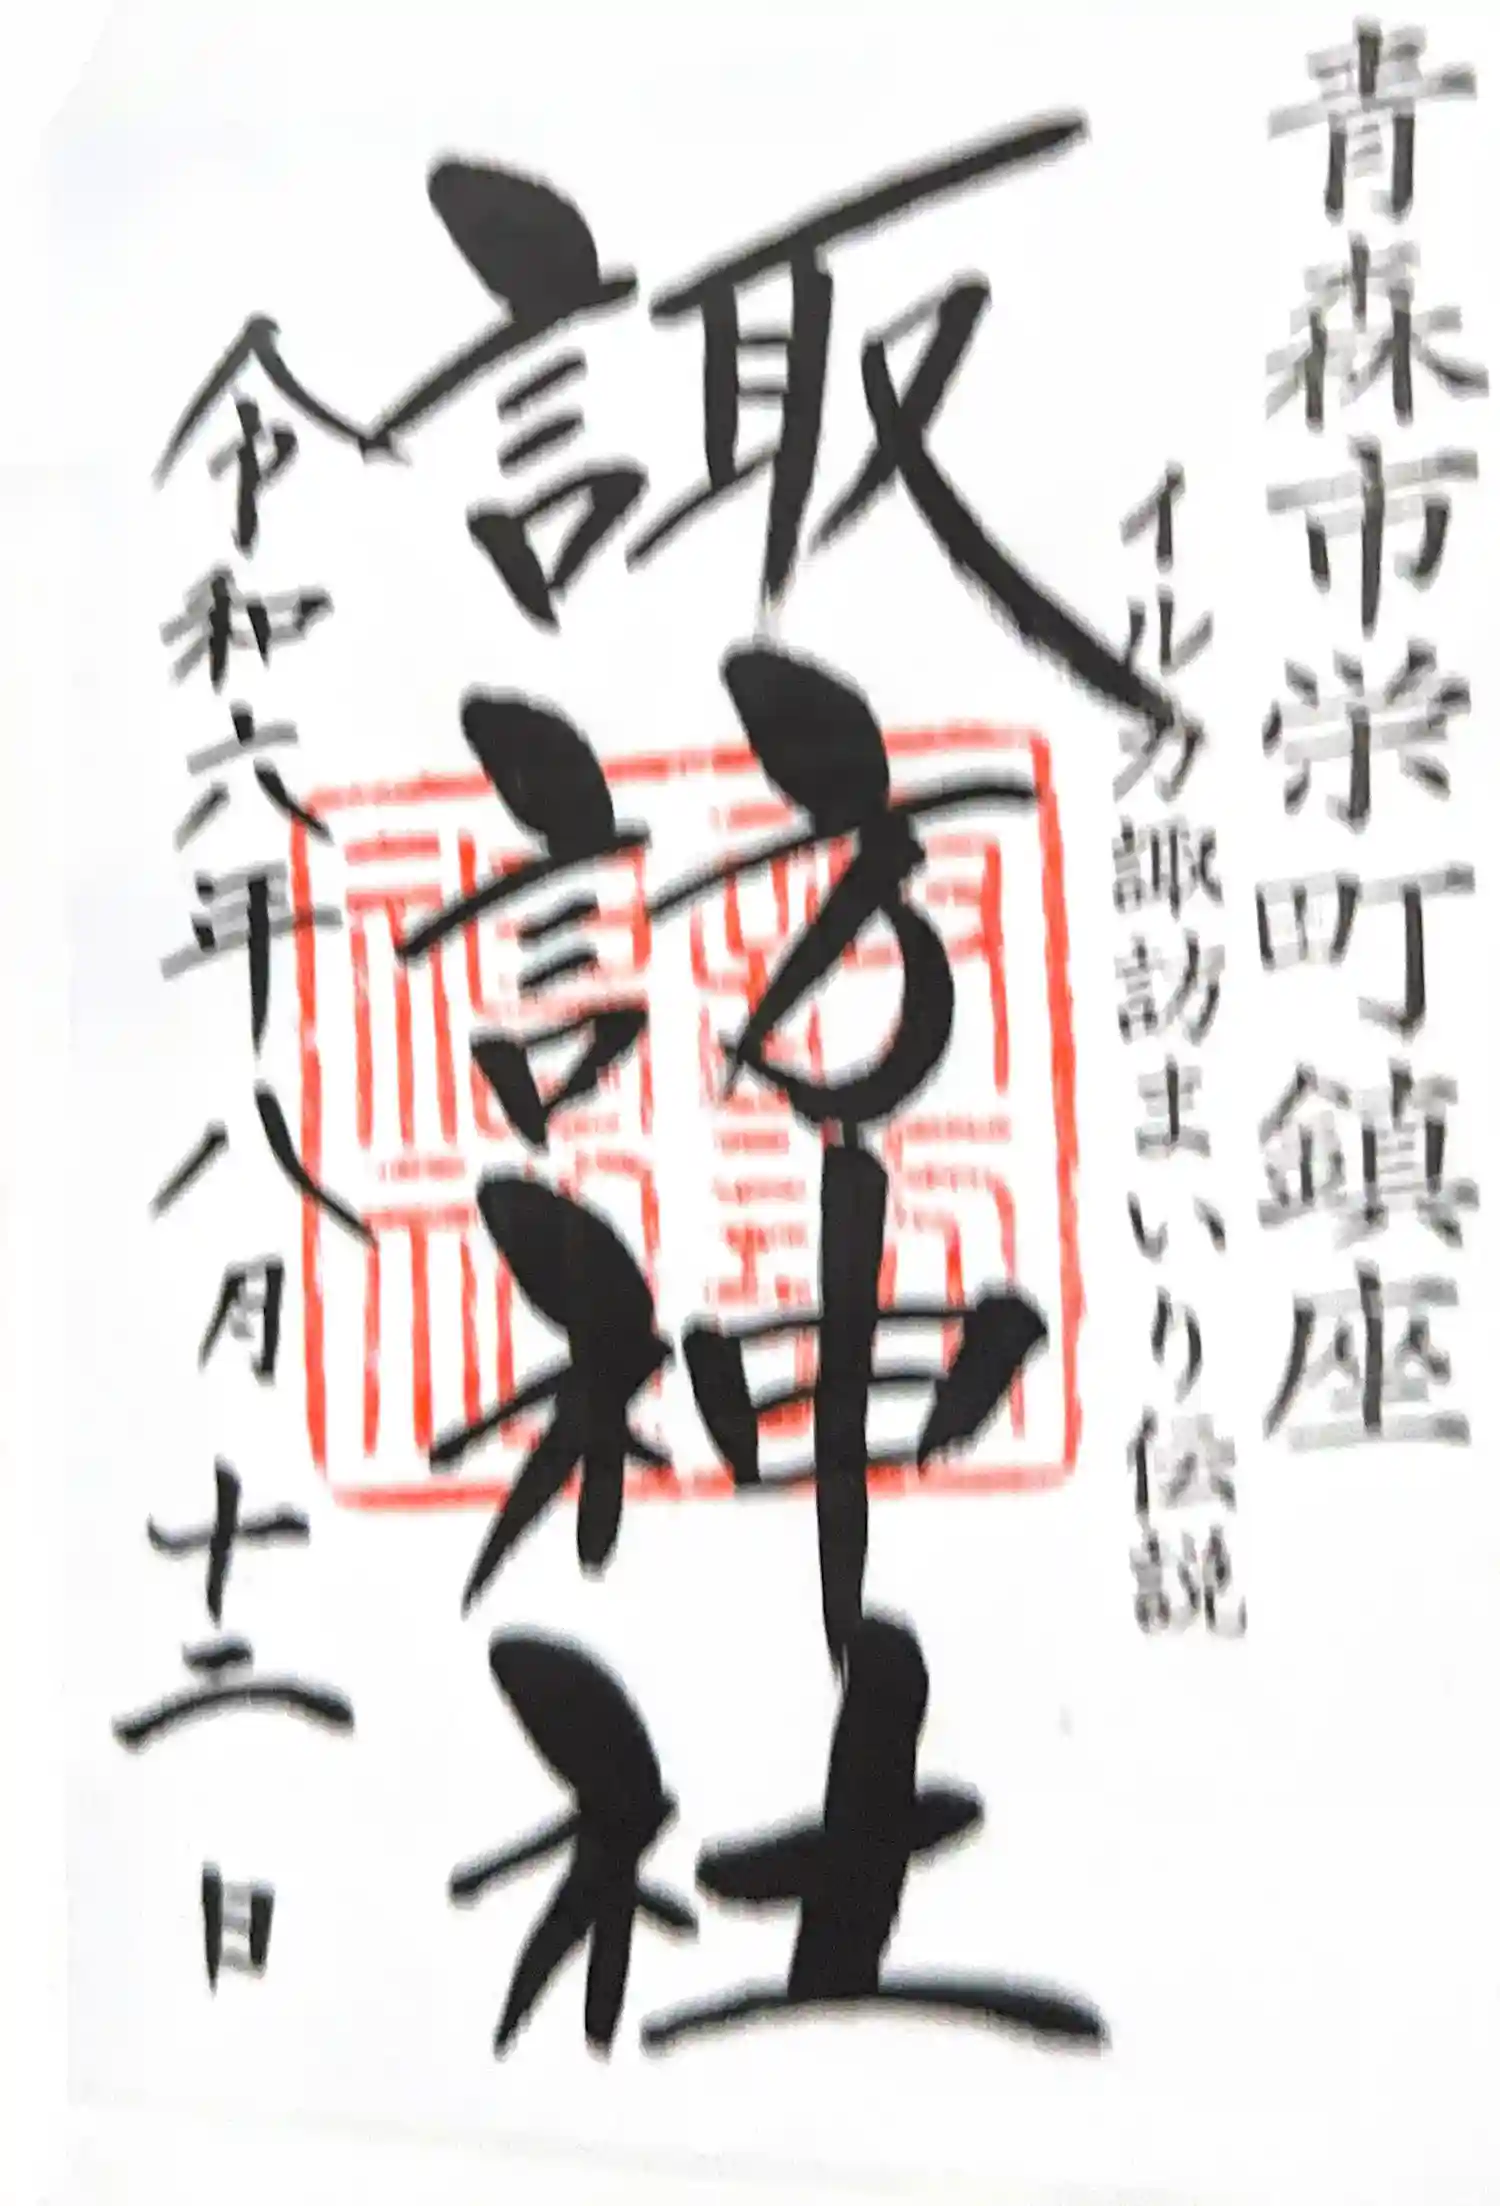 青森市栄町鎮座
イルカ諏訪まいり伝説
諏訪神社
令和六年八月十二日